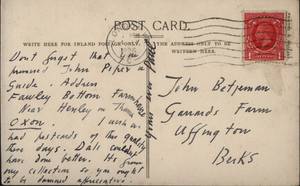 POST CARD.
WRITE HERE FOR INLAND POSTAGE ONLY.
THE ADDRESS ONLY TO BE
WRITTEN HERE.
Don't forget that you
promised John Piper a
Guide. Address
Fawley Bottom Farmhouse
Near Henley on Thames
OXON. I wish we
had postcards of this quality
these days. Dali couldn't
have done better. It's from
my collection so you ought
to be damned appreciative.
yours ever
John Betjeman
Garrards Farm
Uffington
Berks